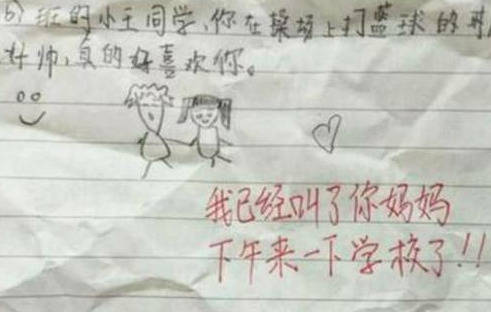 6)班的小王同学,你在操场上打蓝球的
好帅,真的好喜欢你。
我已经叫了你妈妈
下午来一下学校了!!